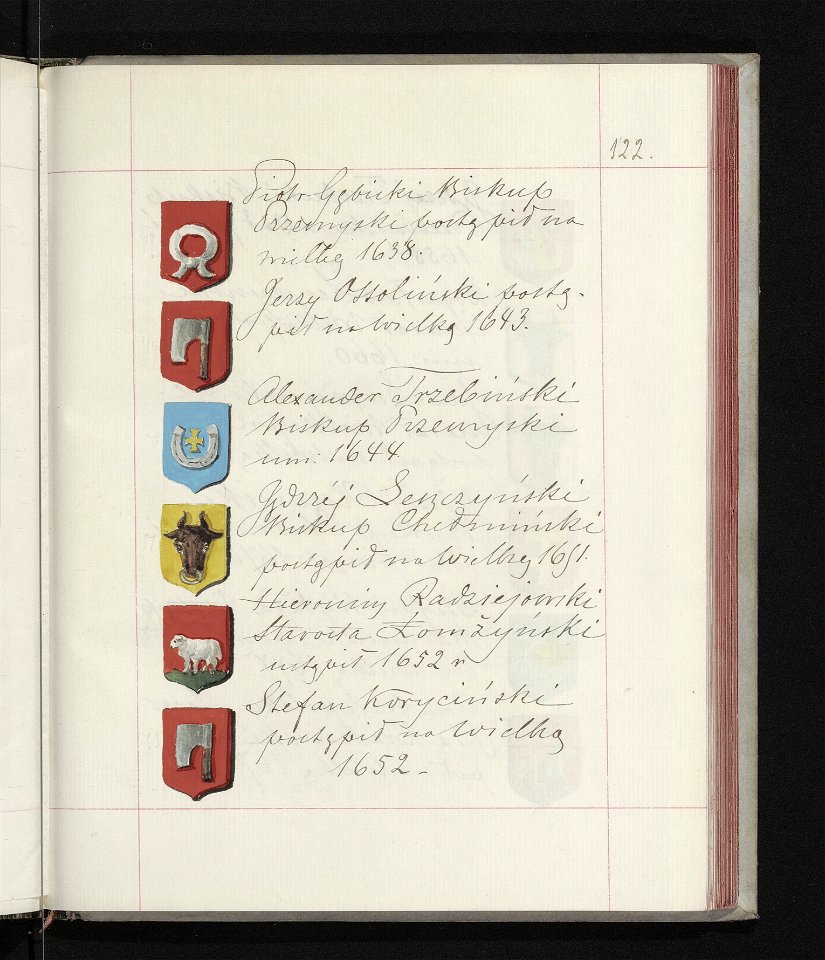 122.
Piotr Gębicki Biskup
Przemyski postąpił na
wielką 1638.
Jerzy Ossoliński postą-
pił na Wielką 1643.
Alexander Trzebiński
Biskup Przemyski
um: 1644
Jędrzéj Leszczyński
Biskup Chełmiński
postąpił na Wielką 1651.
Hieronim Radziejowski
Starosta Łomżyński
ustąpił 1652 r
Stefan Koryciński
postąpił na Wielką
1652 -